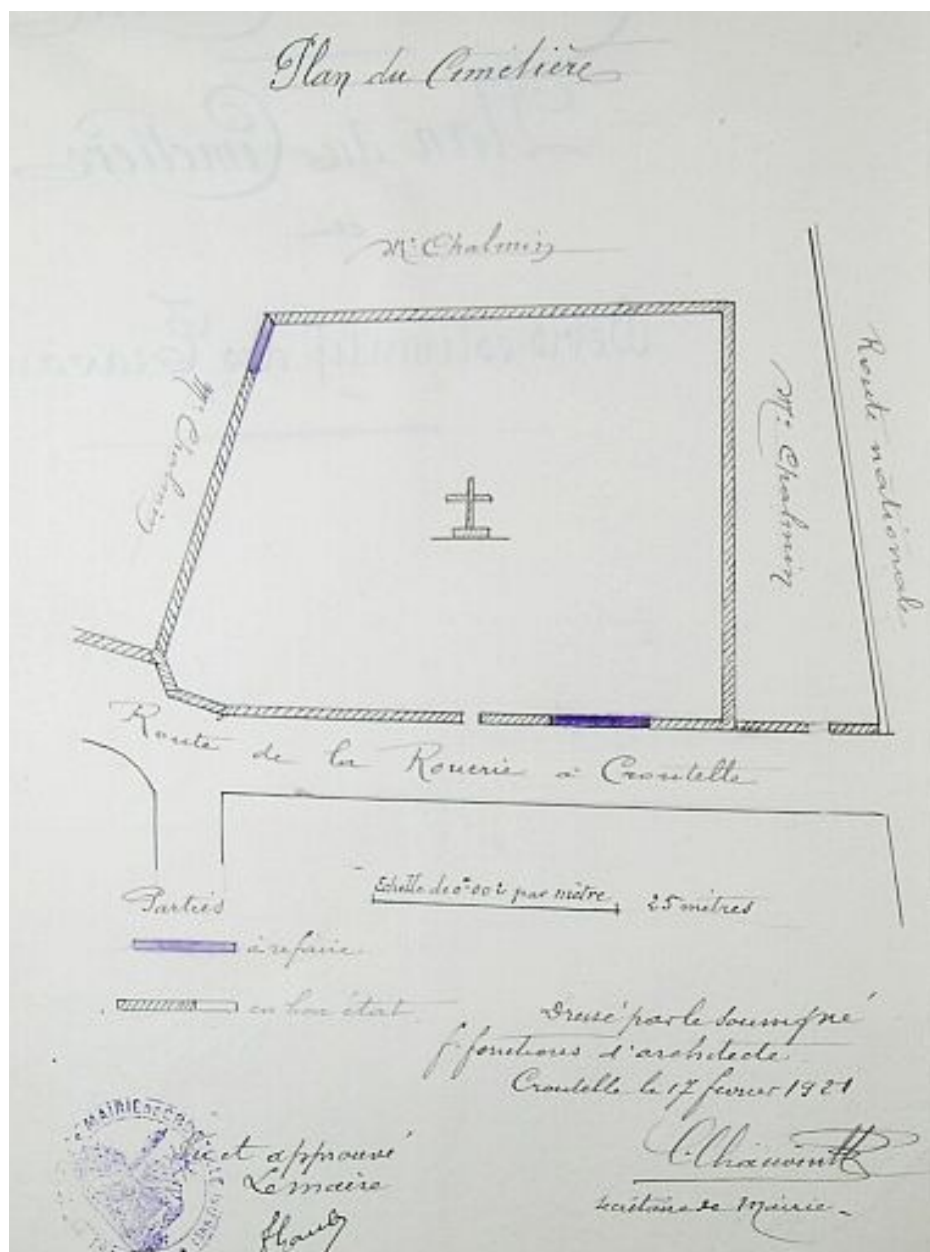 Plan du Cimetière
Mr Chalmin
Mr Chalmin
Mr Chalmin
Route nationale
Route de la Rouerie à Croutelle
Echelle de 0m002 par mètre 25 mètres
Parties
à refaire
en bon état
Dressé par le soussigné
f. fonctions d'architecte
Croutelle le 17 février 1921
secrétaire de Mairie
Vu et approuvé
Le maire
MAIRIE DE